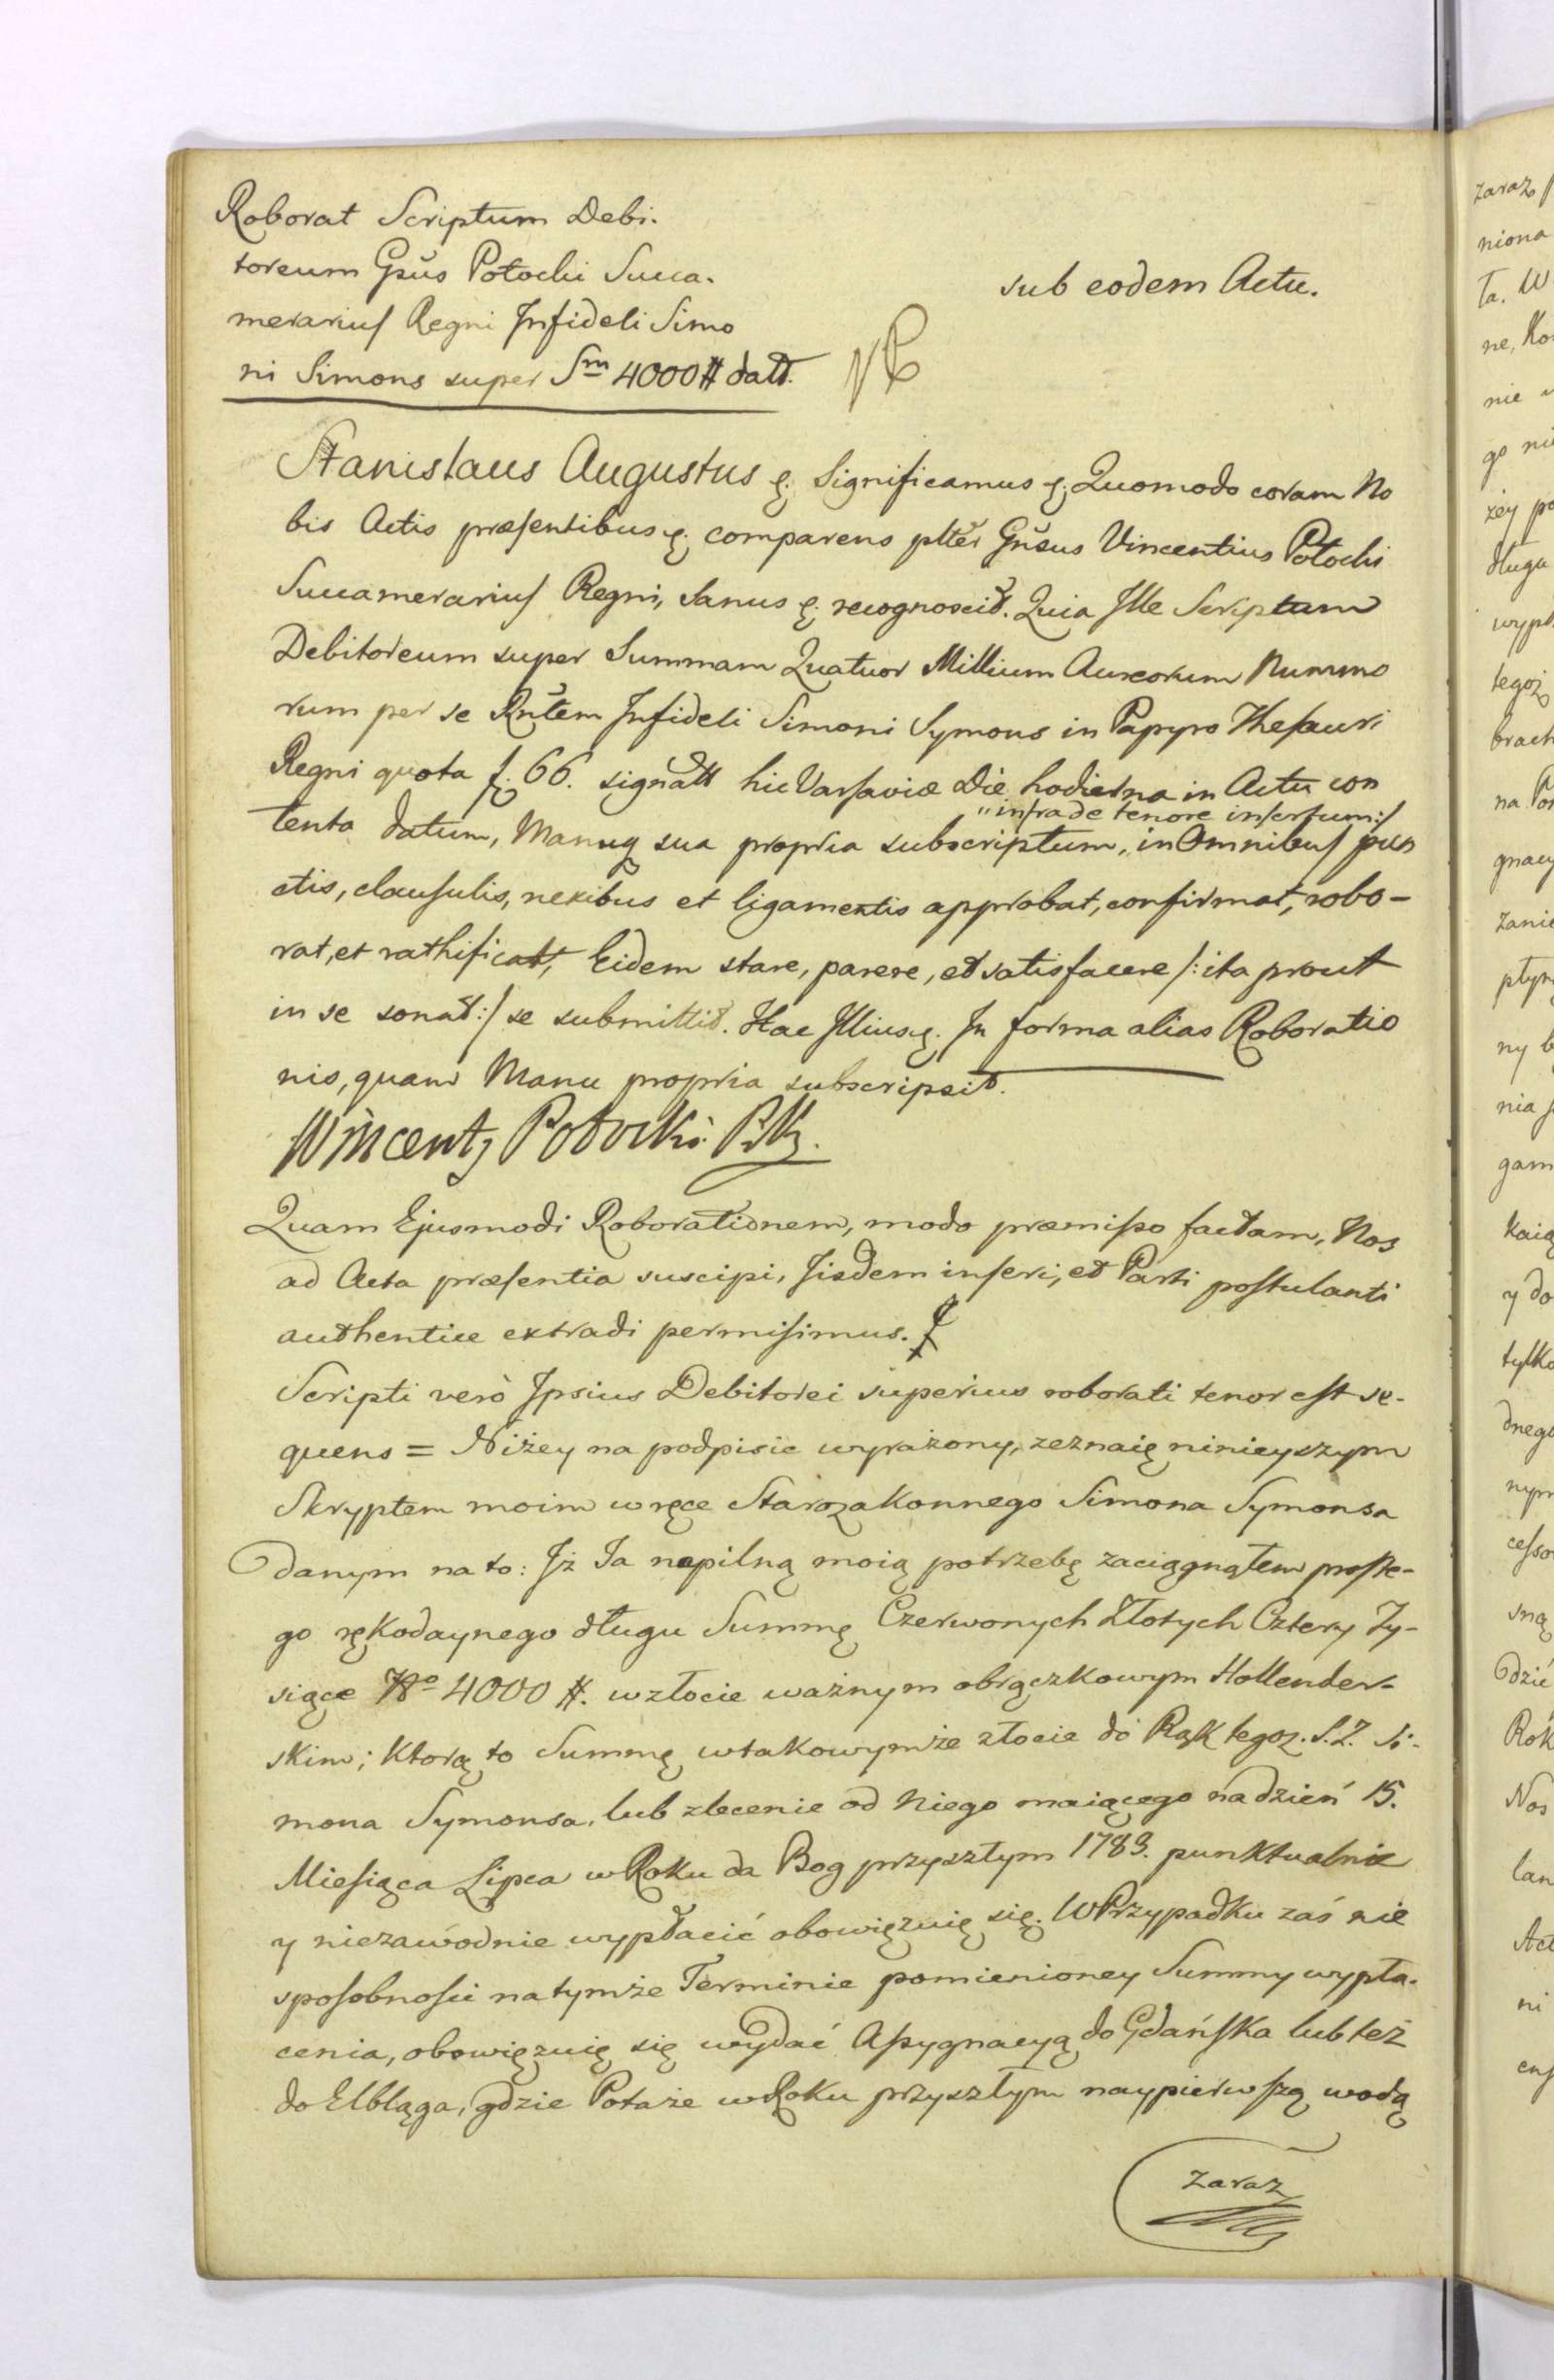 Roborat Scriptum Debi-
toreum Gnsus Potocki Succa-
merarius Regni Infideli Simo
ni Simons super Sm 4000 # datt.
sub eodem Actu.
Stanislaus Augustus &. Significamus &. Quomodo coram No
bis Actis præsentibus &. comparens plter Gnsus Vincentius Potocki
Succamerarius Regni, Sanus &. recognoscit. Quia Ille Scriptum
Debitoreum super Summam Quatuor Millium Aureorum Nummo
rum per se Rntem Infideli Simoni Symons in Papyro Thesauri
Regni quota f. 66. signatt hic Varsaviæ Die hodierna in Actu con
"infra de tenore insertum:/
tento datum, Manuq sua propria subscriptum, in Omnibus pun
ctis, clausulis, nexibus et ligamentis approbat, confirmat, robo-
rat, et rathificat, Eidem stare, parere, et satisfacere /: ita prout
in se sonat :/ se submittit. Hac Illius &. In forma alias Roboratio
nis, quam Manu propria subscripsit.
Wincenty Potocki PK.
Quam Ejusmodi Roborationem, modo præmisso factam, Nos
ad Acta præsentia suscipi, Iisdem inseri, et Parti postulanti
authentice extradi permisimus.
Scripti verò Ipsius Debitorei superius roborati tenor est se-
quens = Niżey na podpisie wyrażony, zeznaię ninieyszym
Skryptem moim w ręce Starozakonnego Simona Symonsa
danym na to: Iż Ja na pilną moią potrzebę zaciągnąłem proste-
go rękodaynego długu Summę Czerwonych Złotych Cztery Ty-
siące No 4000 #. w złocie ważnym obrączkowym Hollender-
skim; Ktorą to Summę w takowymże złocie do Rąk tegoż. S. Z. Si-
mona Symonsa, lub zlecenie od Niego maiącego na dzień 15.
Miesiąca Lipca w Roku da Bog przyszłym 1783. punktualnie
y niezawodnie wypłacić obowięzuię się. W Przypadku zaś nie
sposobności na tymże Terminie pomienioney Summy wypła-
cenia, obowięzuię się wydać Assygnacyą do Gdańska lub też
do Elbląga, gdzie Potaże w Roku przyszłym naypierwszą wodą
zaraz